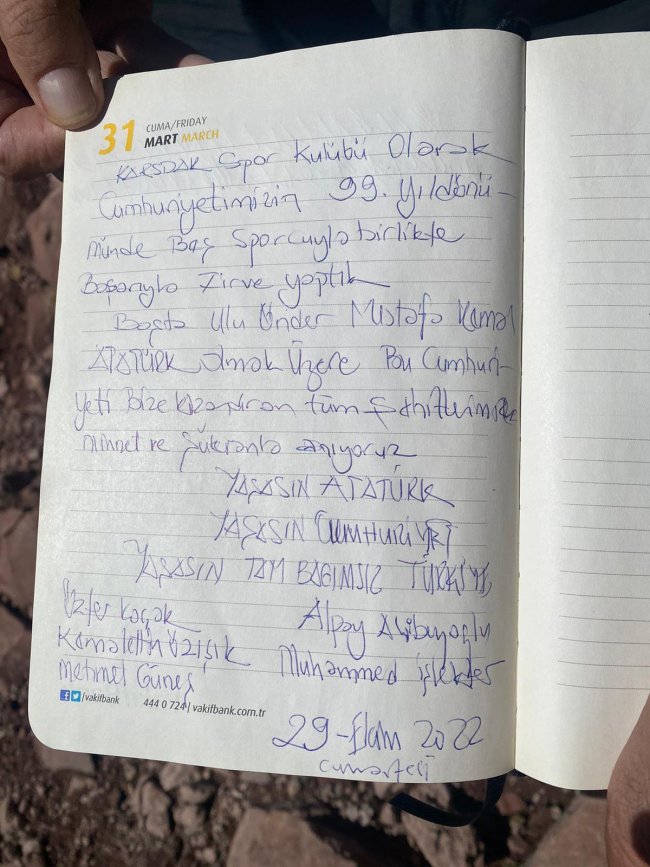 31 CUMA/FRIDAY
MART MARCH
KARSDAK Spor Kulübü Olarak
Cumhuriyetimizin 99. yıldönü-
münde Beş Sporcuyla birlikte
Başarıyla Zirve yaptık
Başta Ulu Önder Mustafa Kemal
ATATÜRK olmak Üzere Bu Cumhuri-
yeti Bize kazandıran tüm Şehitlerimizi
minnet ve Şükranla anıyoruz
YAŞASIN ATATÜRK
YAŞASIN CUMHURİYET
YAŞASIN TAM BAĞIMSIZ TÜRKİYE
Koçak Alpay
Kamalettin Özışık Muhammed
Mehmet Güneş
/vakifbank 444 0 724 | vakifbank.com.tr
29 - Ekim 2022
cumartesi